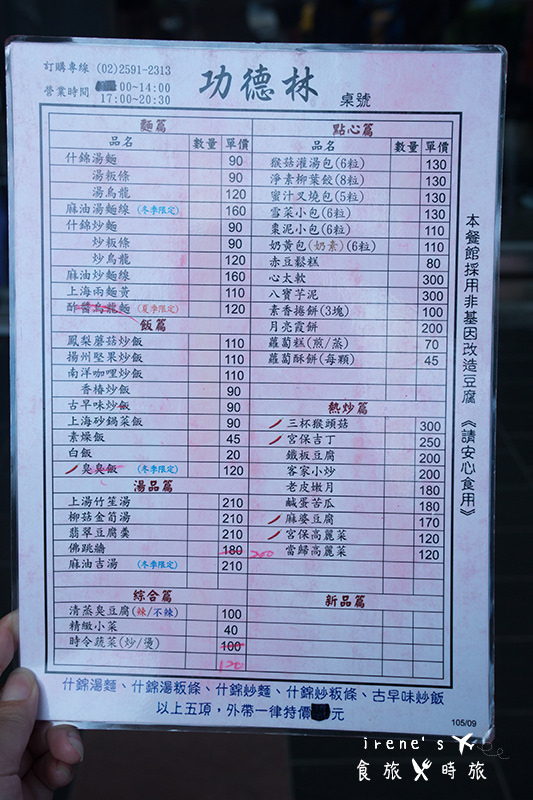 訂購專線 (02)2591-2313
營業時間 00~14:00
17:00~20:30
功德林
桌號
麵篇
品名 數量 單價
什錦湯麵 90
湯粄條 90
湯烏龍 120
麻油湯麵線 (冬季限定) 160
什錦炒麵 90
炒粄條 90
炒烏龍 120
麻油炒麵線 160
上海兩麵黃 110
酢醬烏龍麵 (夏季限定) 120
飯篇
鳳梨蘑菇炒飯 110
揚州堅果炒飯 110
南洋咖哩炒飯 110
香椿炒飯 90
古早味炒飯 90
上海砂鍋菜飯 90
素燥飯 45
白飯 20
臭臭飯 (冬季限定) 120
湯品篇
上湯竹笙湯 210
柳菇金筍湯 210
翡翠豆腐羹 210
佛跳牆 180 200
麻油吉湯 (冬季限定) 210
綜合篇
清蒸臭豆腐(辣/不辣) 100
精緻小菜 40
時令蔬菜(炒/燙) 100
120
點心篇
品名 數量 單價
猴菇灌湯包(6粒) 130
淨素柳葉餃(8粒) 130
蜜汁叉燒包(5粒) 130
雪菜小包(6粒) 130
棗泥小包(6粒) 110
奶黃包(奶素)(6粒) 110
赤豆鬆糕 80
心太軟 300
八寶芋泥 300
素香捲餅(3塊) 100
月亮霞餅 200
蘿蔔糕(煎/蒸) 70
蘿蔔酥餅(每顆) 45
熱炒篇
三杯猴頭菇 300
宮保吉丁 250
鐵板豆腐 200
客家小炒 200
老皮嫩月 180
鹹蛋苦瓜 180
麻婆豆腐 170
宮保高麗菜 120
當歸高麗菜 120
新品篇
本餐館採用非基因改造豆腐《請安心食用》
什錦湯麵、什錦湯粄條、什錦炒麵、什錦炒粄條、古早味炒飯
以上五項,外帶一律特價 元
105/09
irene's
食旅 時旅